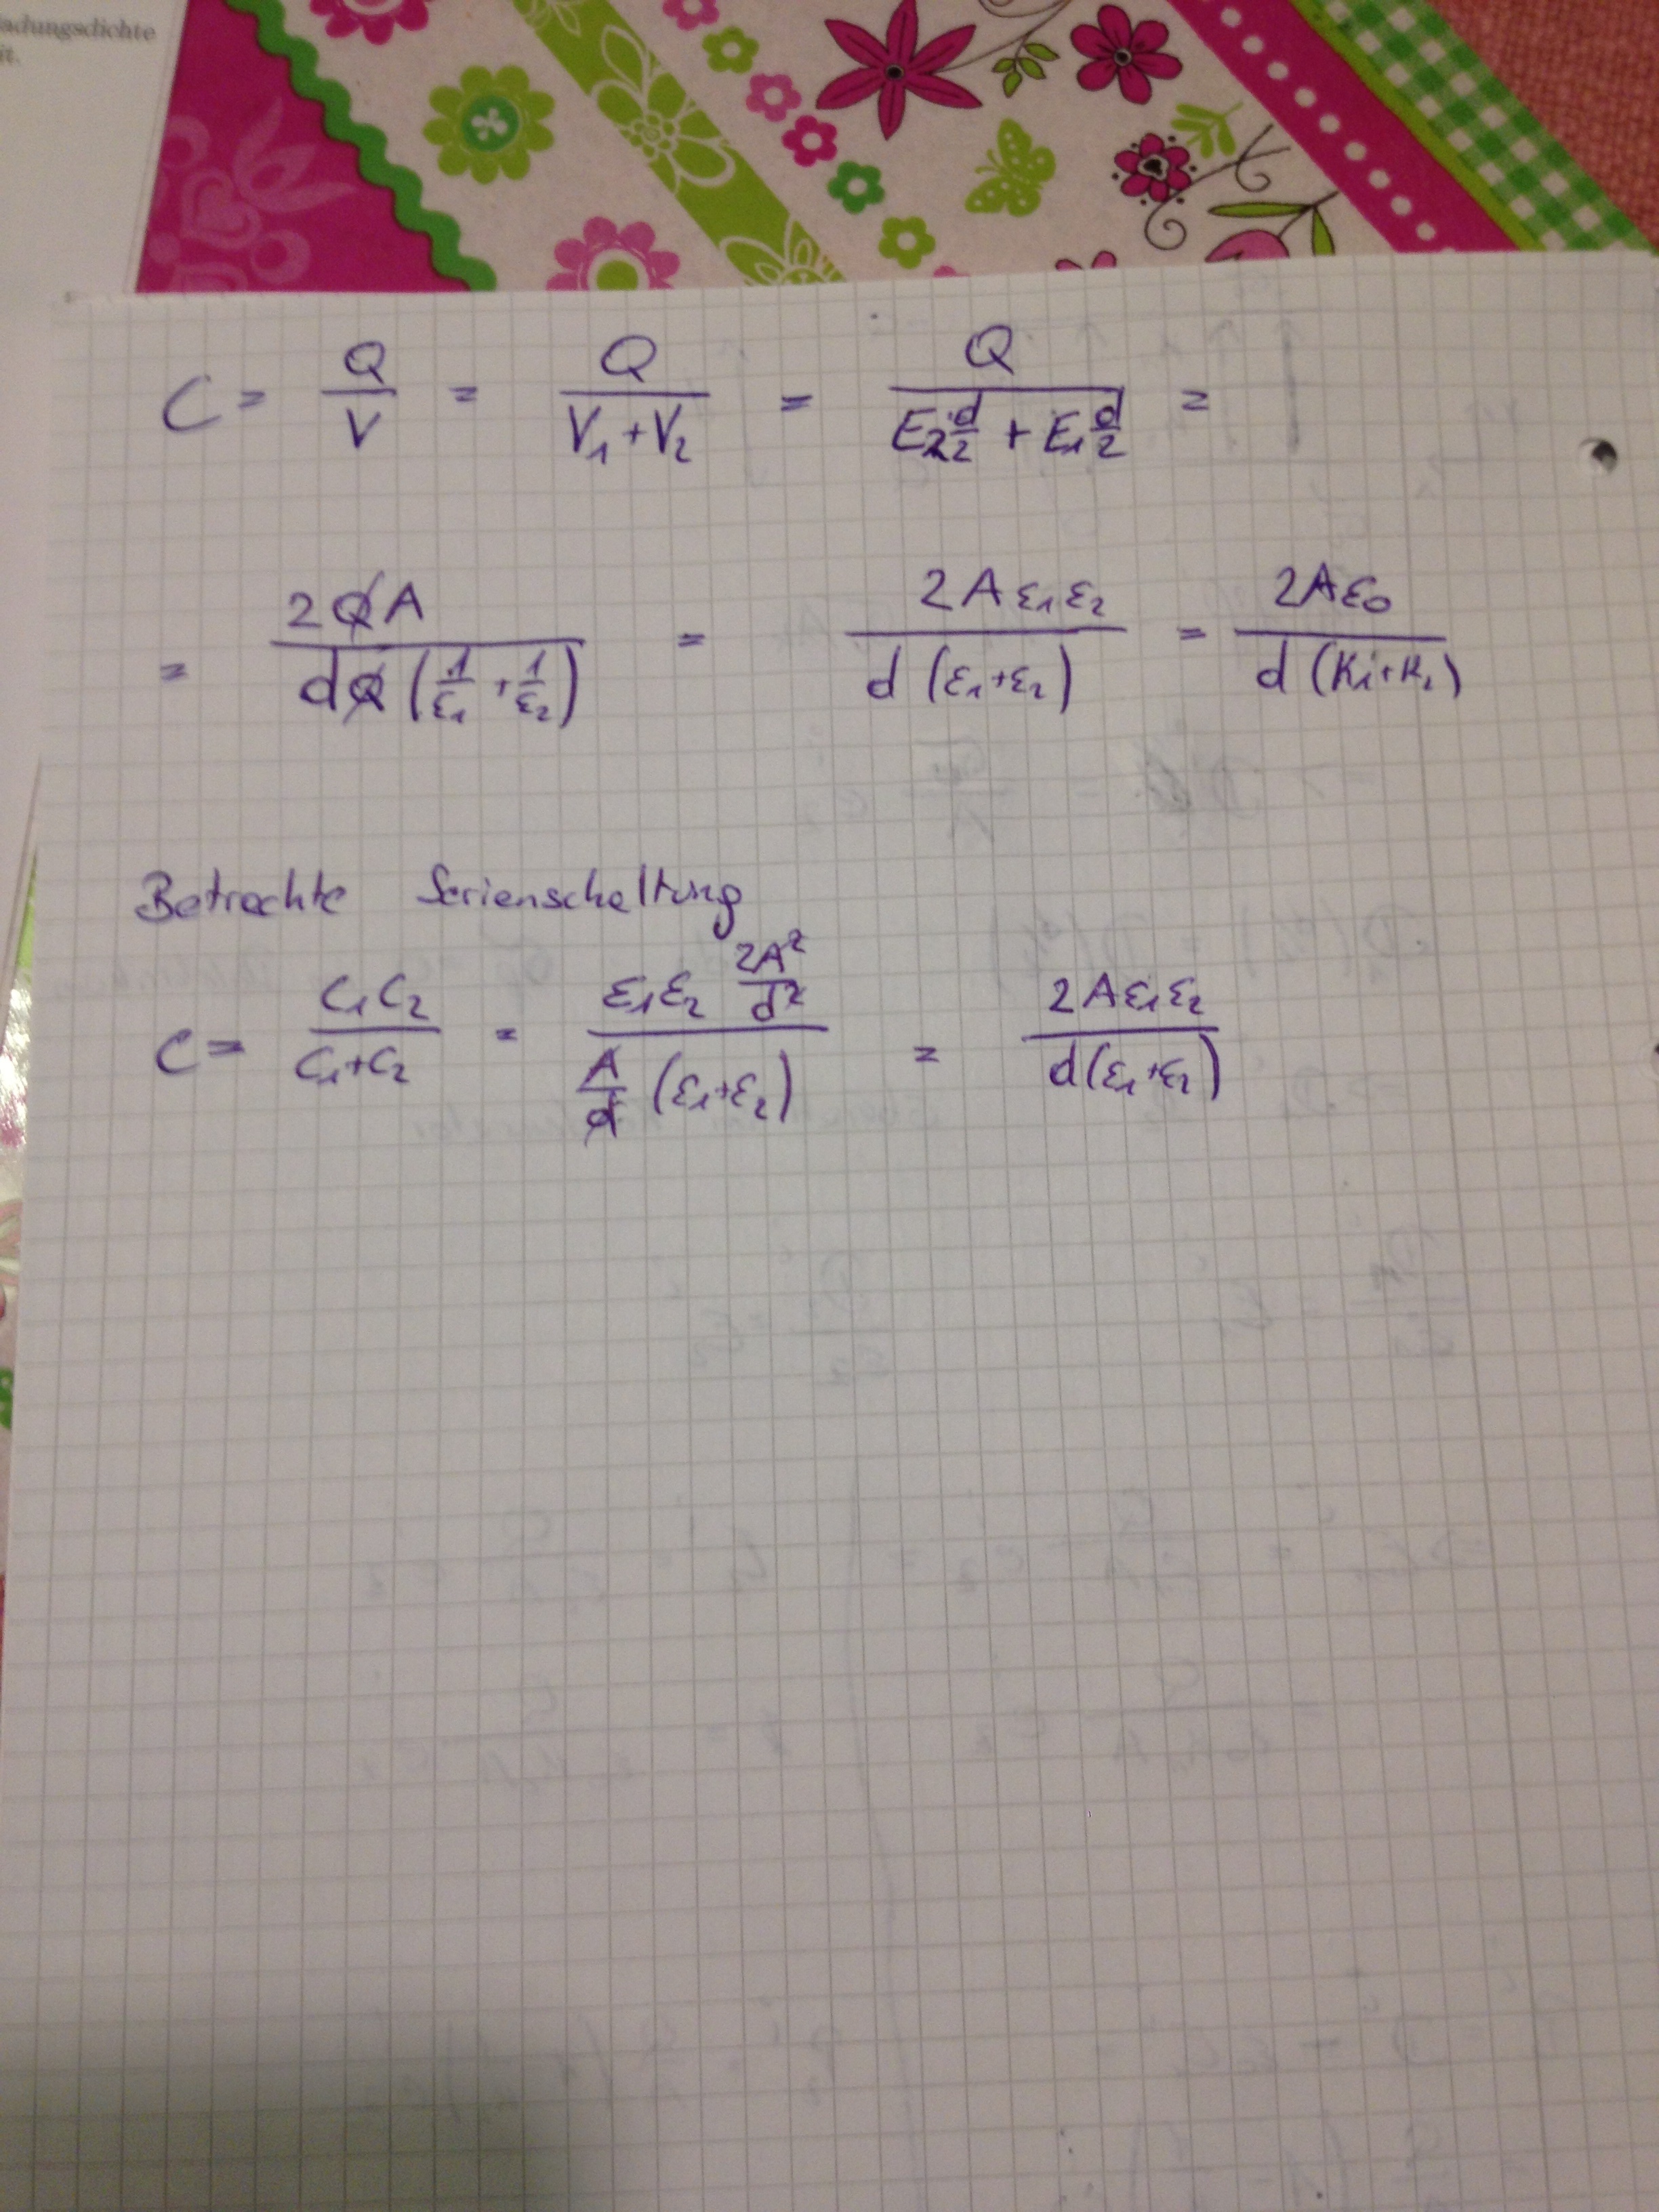 adungsdichte
it.
C = Q/V = Q/(V₁+V₂) = Q/(E₂ d/2 + E₁ d/2) =
= 2QA/(dQ(1/ε₁ + 1/ε₂)) = 2Aε₁ε₂/(d(ε₁+ε₂)) = 2Aε₀/(d(K₁+K₂))
Betrachte Serienschaltung
C = C₁C₂/(C₁+C₂) = ε₁ε₂ 2A²/d² / (A/d (ε₁+ε₂)) = 2Aε₁ε₂/(d(ε₁+ε₂))